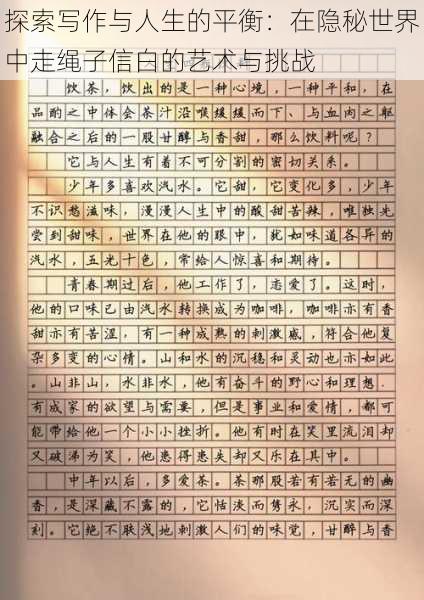 探索写作与人生的平衡：在隐秘世界
中走绳子信白的艺术与挑战
饮茶，饮出的是一种心境，一种平和，在
品酌之中体会茶汁沿喉缓缓而下、与血肉之躯
融合之后的一股甘醇与香甜，那么饮料呢？
它与人生有着不可分割的密切关系。
少年多喜欢汽水。它甜，它变化多，少年
不识愁滋味，漫漫人生中的酸甜苦辣，唯独先
尝到甜味，世界在他的眼中，犹如味道各异的
汽水，五光十色，常给人惊喜和期待。
青春期过后，他工作了，恋爱了。这时，
他的口味已由汽水转换成为咖啡，咖啡亦有香
甜亦有苦涩，有一种成熟的刺激感，符合他复
杂多变的心情。山和水的沉稳和灵动也亦如此
。山非山，水非水，他有奋斗的野心和理想.
有成家的欲望与需要，但是事业和爱情，都可
能带给他一个小小挫折。他有时在笑里流泪却
又破涕为笑，他患得患失却又乐在其中。
中年以后，多爱茶。茶那股若有若无的幽
香，是深藏不露的，它恬淡而隽永，沉实而深
刻。它绝不肤浅地刺激人们的味觉，甘醇与香